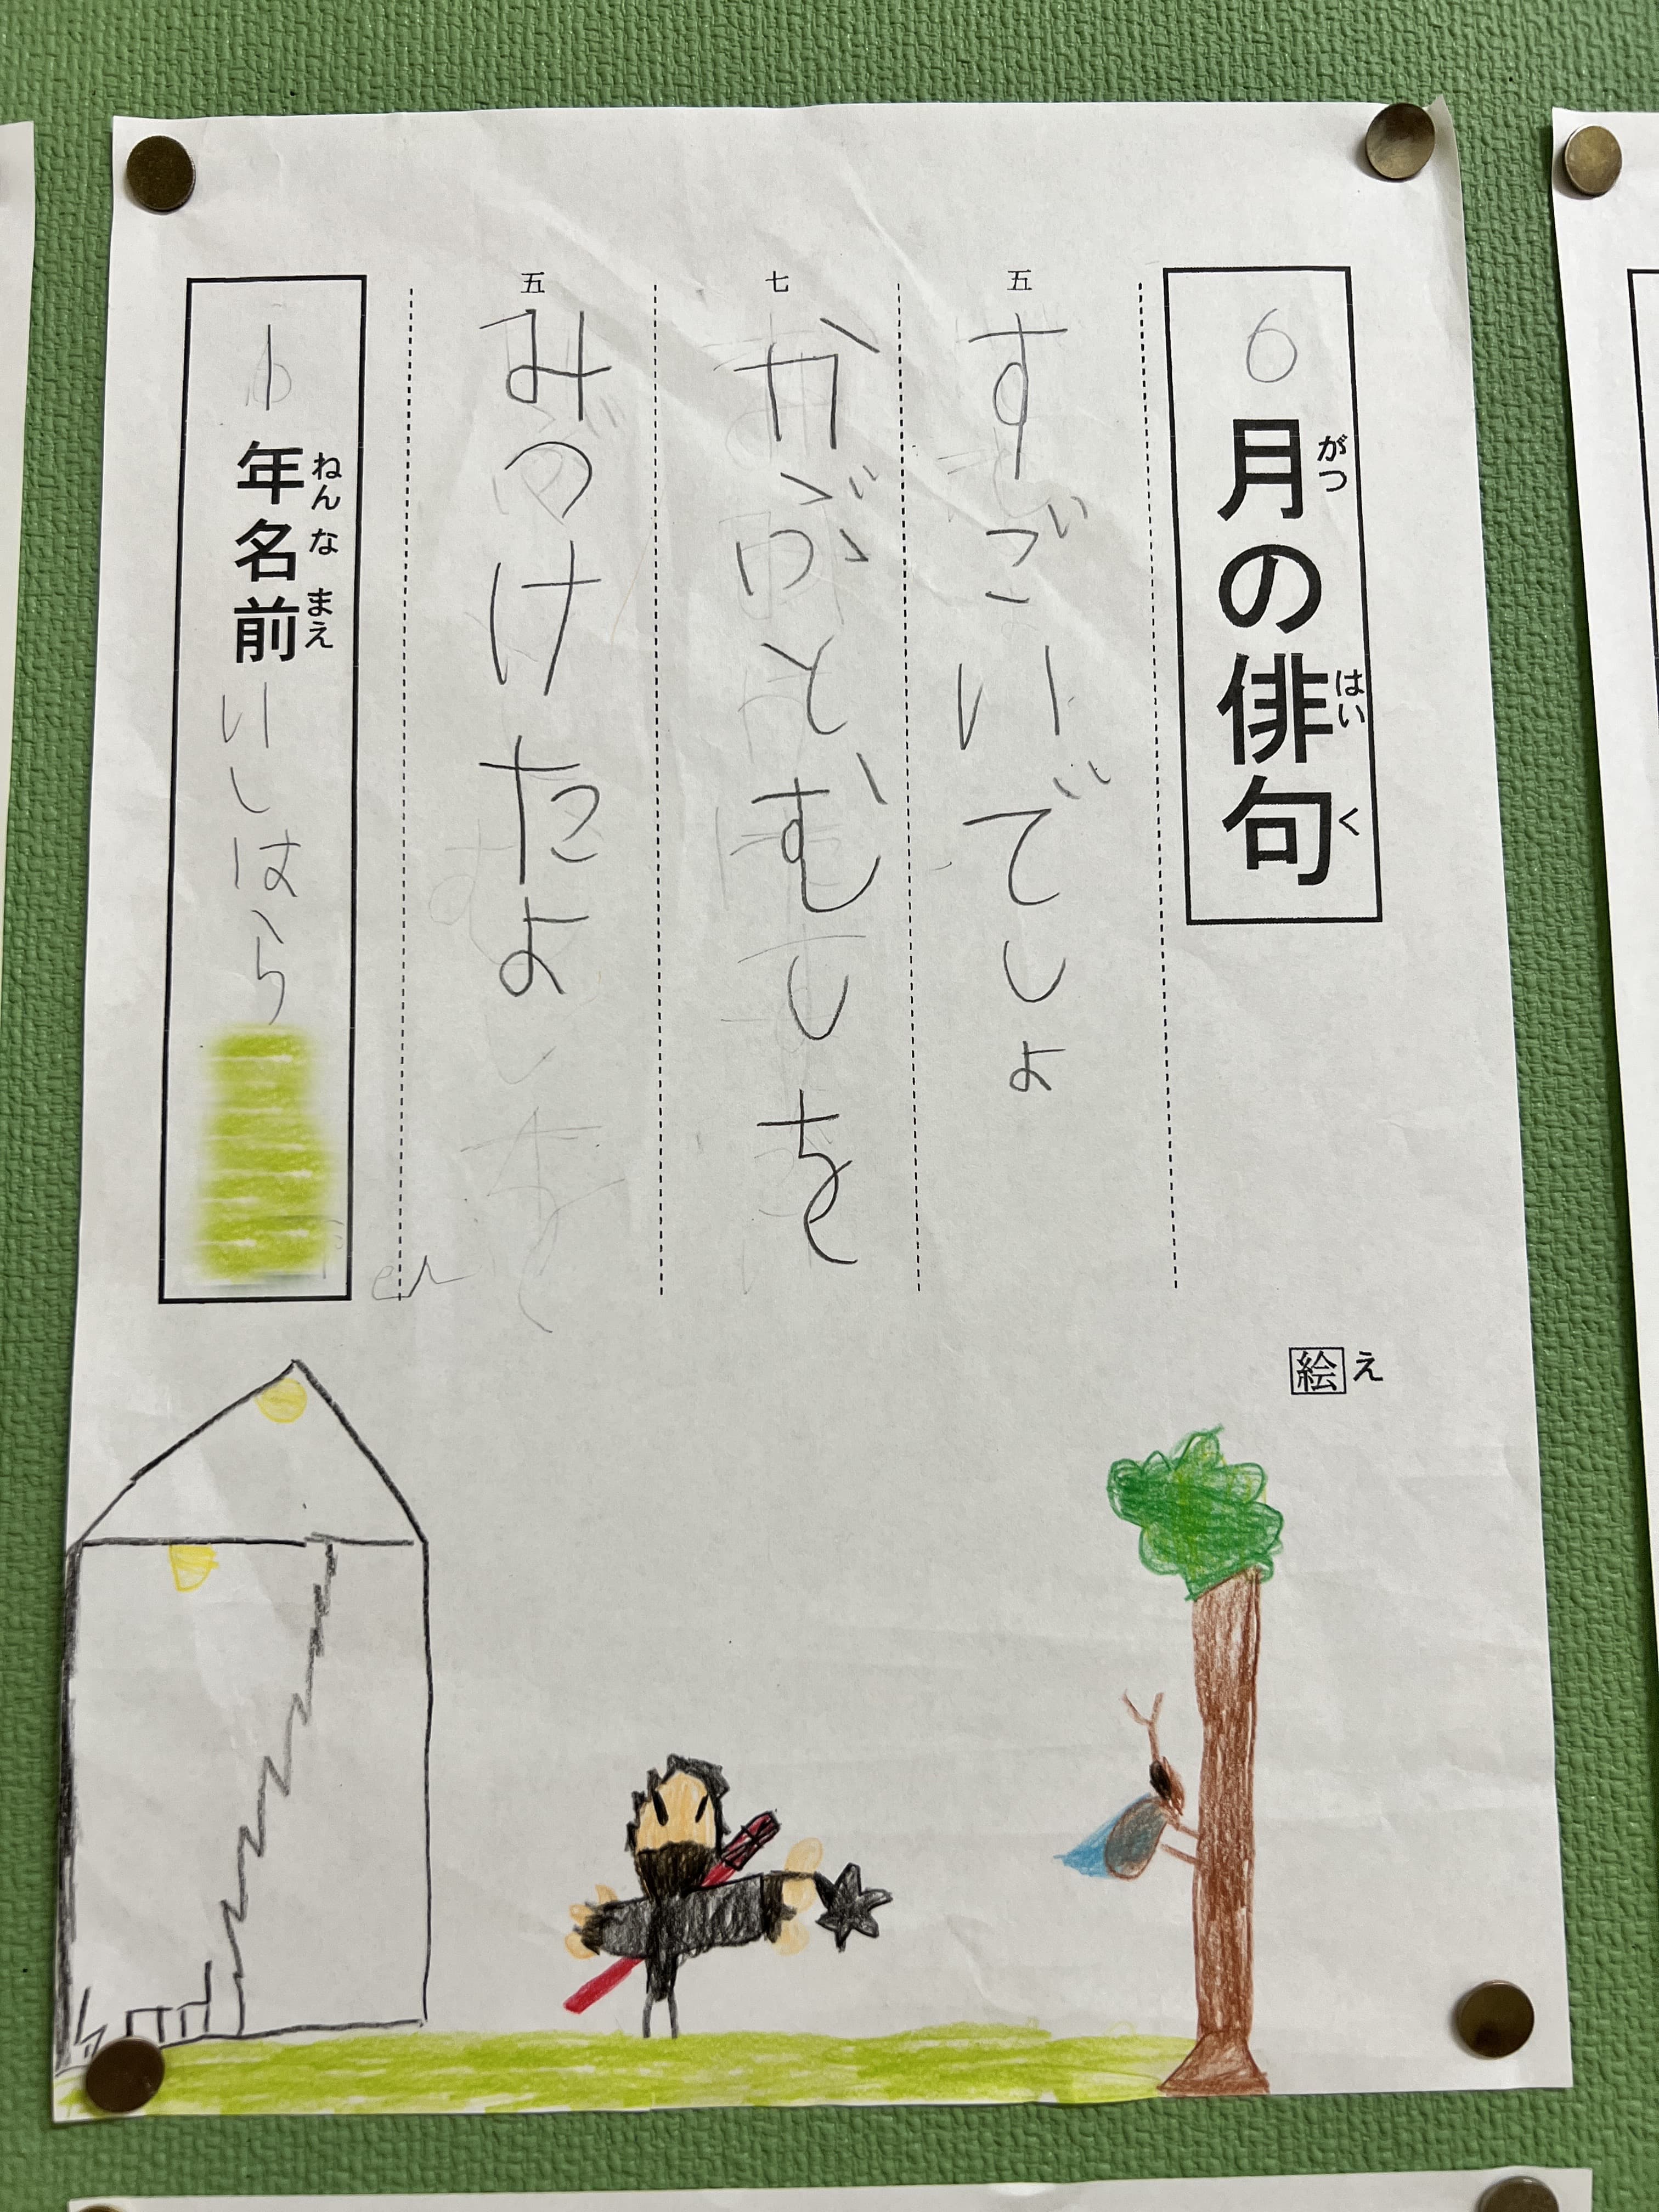 6月の俳句
がつ はい く
五
すごいでしょ
七
かぶとむしを
五
みつけたよ
1年名前 いしはら
ねん な まえ
絵 え